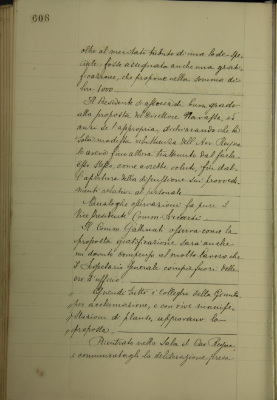 608
oltre al meritato tributo di una lode spe-
ciale fosse assegnata anche una grati-
ficazione, che propone nella somma di
lire 1000.
Il Presidente si associa di buon grado
alla proposta del Direttore Navassa, ed
anzi se l'appropria, dichiarando che la
sola modestia dell'Avv. Roque
lo aveva fino allora trattenuto dal farla
esso stesso, come avrebbe voluto, fin dal-
l'apertura della discussione sui provvedi-
menti relativi al personale.
Analoghe osservazioni fa pure il
Vice Presidente Comm.
Il Comm. osserva come la
proposta gratificazione sarà anche
un dovuto compenso al molto lavoro che
il Segretario Generale compie fuori delle
ore d'ufficio.
Quindi tutti i colleghi della Giunta,
per acclamazione, e con vive manife-
stazioni di plauso, approvano la
proposta.
Rientrato nella Sala il Cav. Roque
e comunicatagli la deliberazione presa